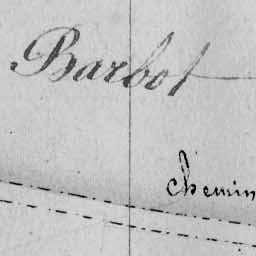 Barbot
chemin